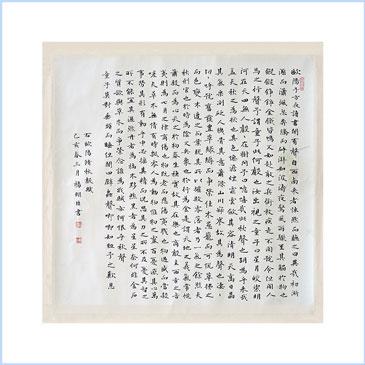 歐陽子方夜讀書聞有聲自西南來者悚然而聽之曰異哉初淅
瀝以瀟颯忽奔騰而砰湃如波濤夜驚風雨驟至其觸於物也
鏦鏦錚錚金鐵皆鳴又如赴敵之兵銜枚疾走不聞號令但聞人
馬之行聲予謂童子此何聲也汝出視之童子曰星月皎潔明
河在天四無人聲聲在樹間予曰噫嘻悲哉此秋聲也胡為乎來哉
蓋夫秋之為狀也其色慘淡煙霏雲斂其容清明天高日晶
其氣慄冽砭人肌骨其意蕭條山川寂寥故其為聲也淒淒
切切呼號憤發豐草綠縟而爭茂佳木蔥蘢而可悅草拂之
而色變木遭之而葉脫其所以摧敗零落者乃一氣之餘烈夫
秋刑官也於時為陰又兵象也於行為金是謂天地之義氣常以
肅殺而為心天之於物春生秋實故其在樂也商聲主西方之音
夷則為七月之律商傷也物既老而悲傷夷戮也物過盛而當殺
嗟夫草木無情有時飄零人為動物惟物之靈百憂感其心萬
事勞其形有動乎中必搖其精而況思其力之所不及憂其智之
所不能宜其渥然丹者為槁木黟然黑者為星星奈何非金石
之質欲與草木而爭榮念誰為之戕賊亦何恨乎秋聲
童子莫對垂頭而睡但聞四壁蟲聲唧唧如助予之歎息
右歐陽修秋聲賦
乙亥春三月楊明臣書